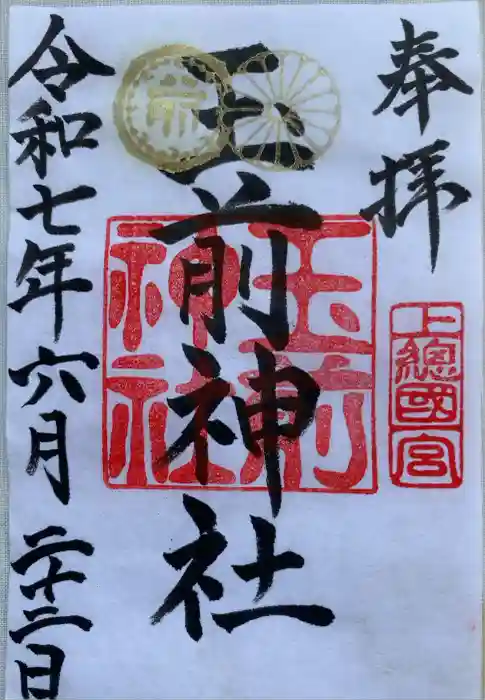 奉拝
上總國宮
玉前神社
玉前神社
令和七年六月二十三日